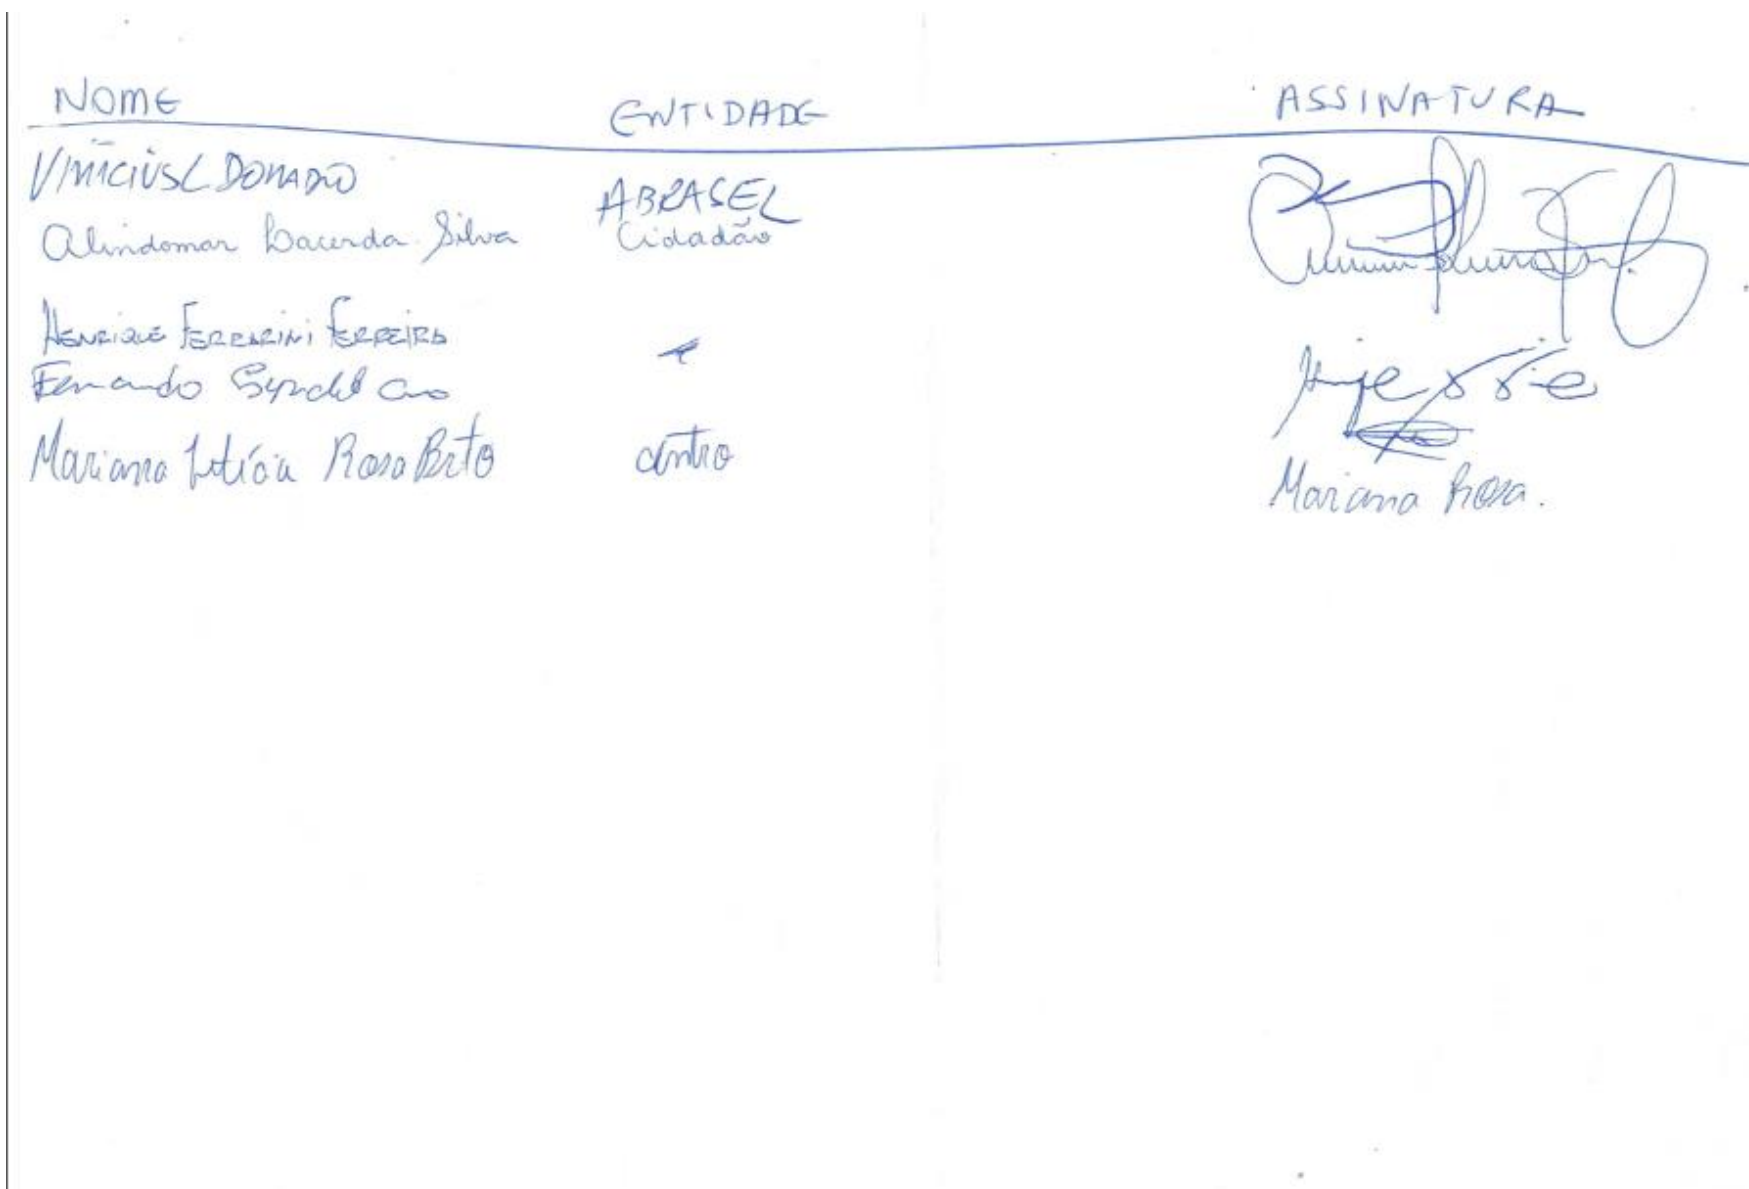 NOME ENTIDADE ASSINATURA
VINICIUS L DONADIO ABRASEL
Alindomar Lacerda Silva Cidadão
HENRIQUE FERRARINI FERREIRA
Fernando
Mariana Letícia Rosa Brito centro
Mariana Rosa.